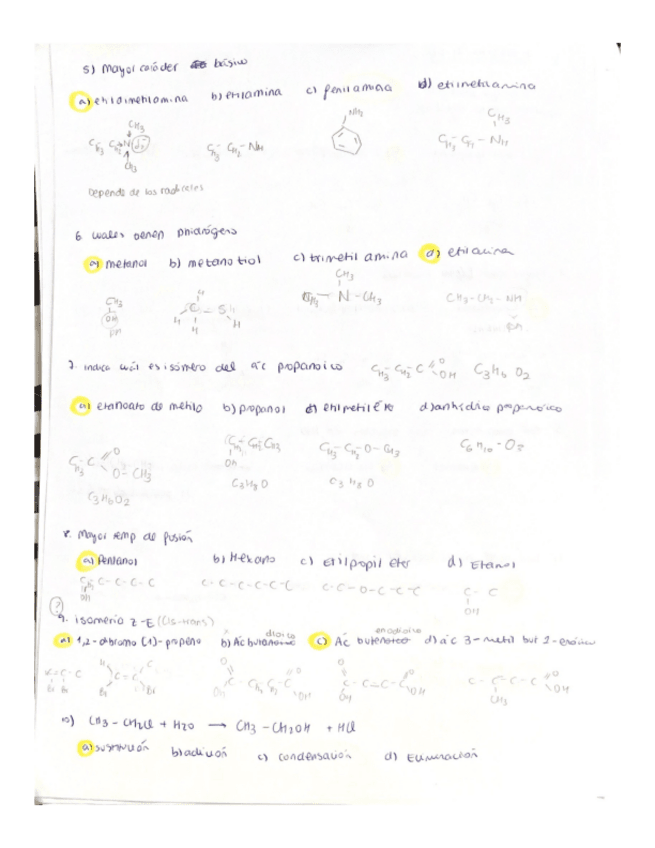 5) Mayor carácter básico
a) etildimetilamina b) etilamina c) fenilamina d) etilmetilamina
CH3 NH2 CH3
CH3 CH2 N CH3-CH2-NH CH3-CH2-NH
CH3
Depende de los radicales
6 cuales tienen phidrógeno
a) metanol b) metanotiol c) trimetil amina d) etilamina
CH3 H CH3
OH C-S CH3-N-CH3 CH3-CH2-NH
PH H H PH
7. indica cuál es isómero del ác propanoico CH3-CH2-C O OH C3H6O2
a) etanoato de metilo b) propanol c) etilmetil éter d) anhídrido propanoico
CH3-C O O-CH3 CH2-CH2-CH3 OH CH3-CH2-O-CH3 C6H10-O3
C3H6O2 C3H8O C3H8O
8. Mayor temp de fusión
a) Pentanol b) Hexano c) Etilpropil eter d) Etanol
C-C-C-C-C C-C-C-C-C-C C-C-O-C-C-C C-C
OH OH
?
9. isomería Z-E (Cis-trans)
dioico enodioico
a) 1,2-dibromo (1)-propeno b) Ác butanoico c) Ác butenoico d) ác 3-metil but 2-enoico
C=C-C H C C=C Br Br O C-CH2-CH2-C O OH OH O C-C=C-C O OH OH C-C=C-C O OH
Br Br CH3
10) CH3-CH2Cl + H2O → CH3-CH2OH + HCl
a) sustitución b) adición c) condensación d) Eliminación